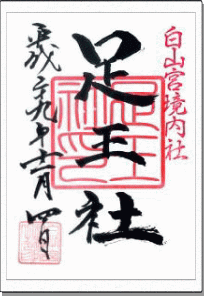 白山宮境内社
足王社
平成二十九年十二月四日